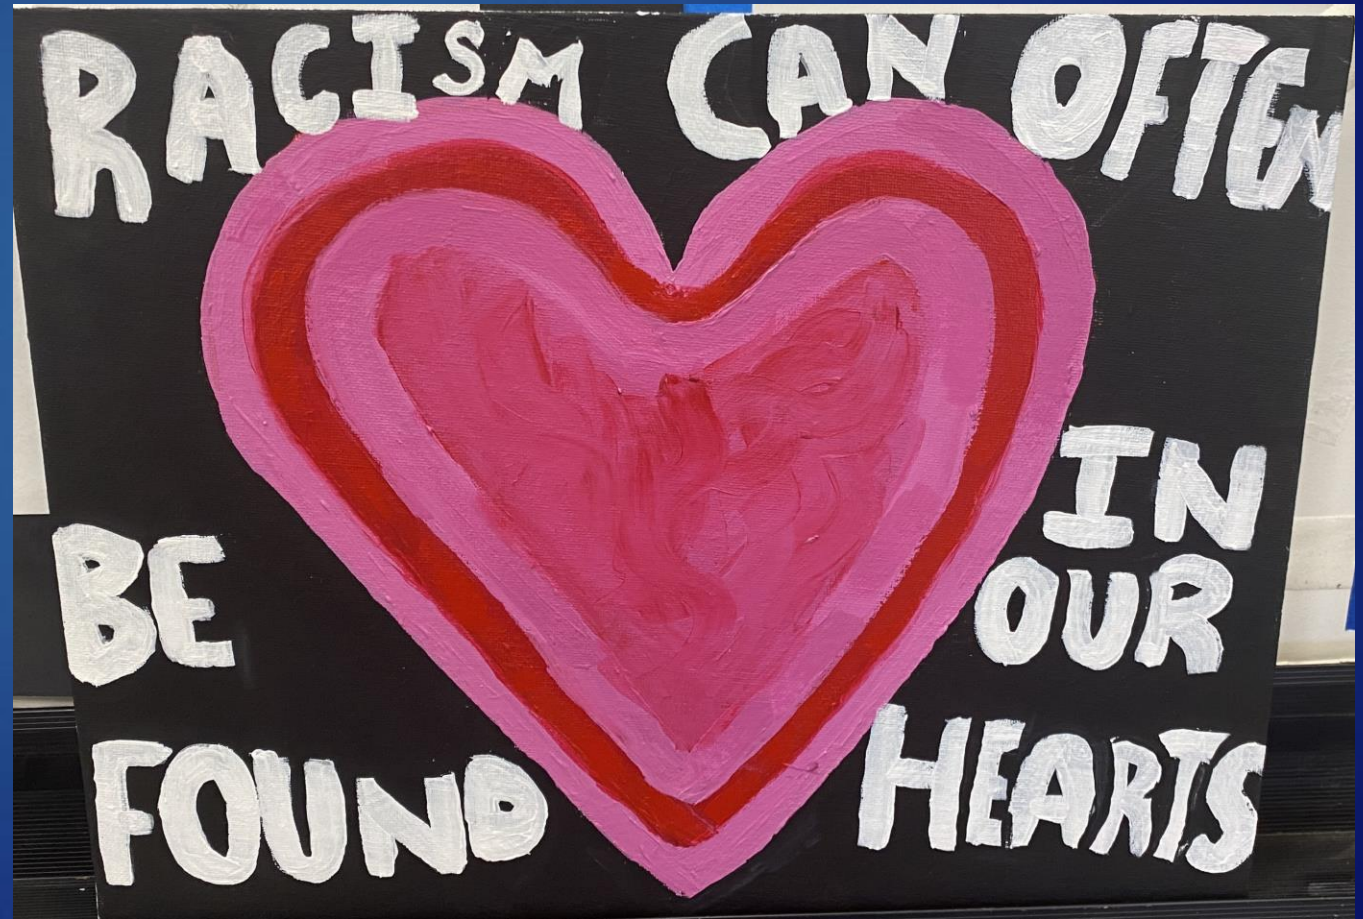 RACISM CAN OFTEN
BE
FOUND
IN
OUR
HEARTS